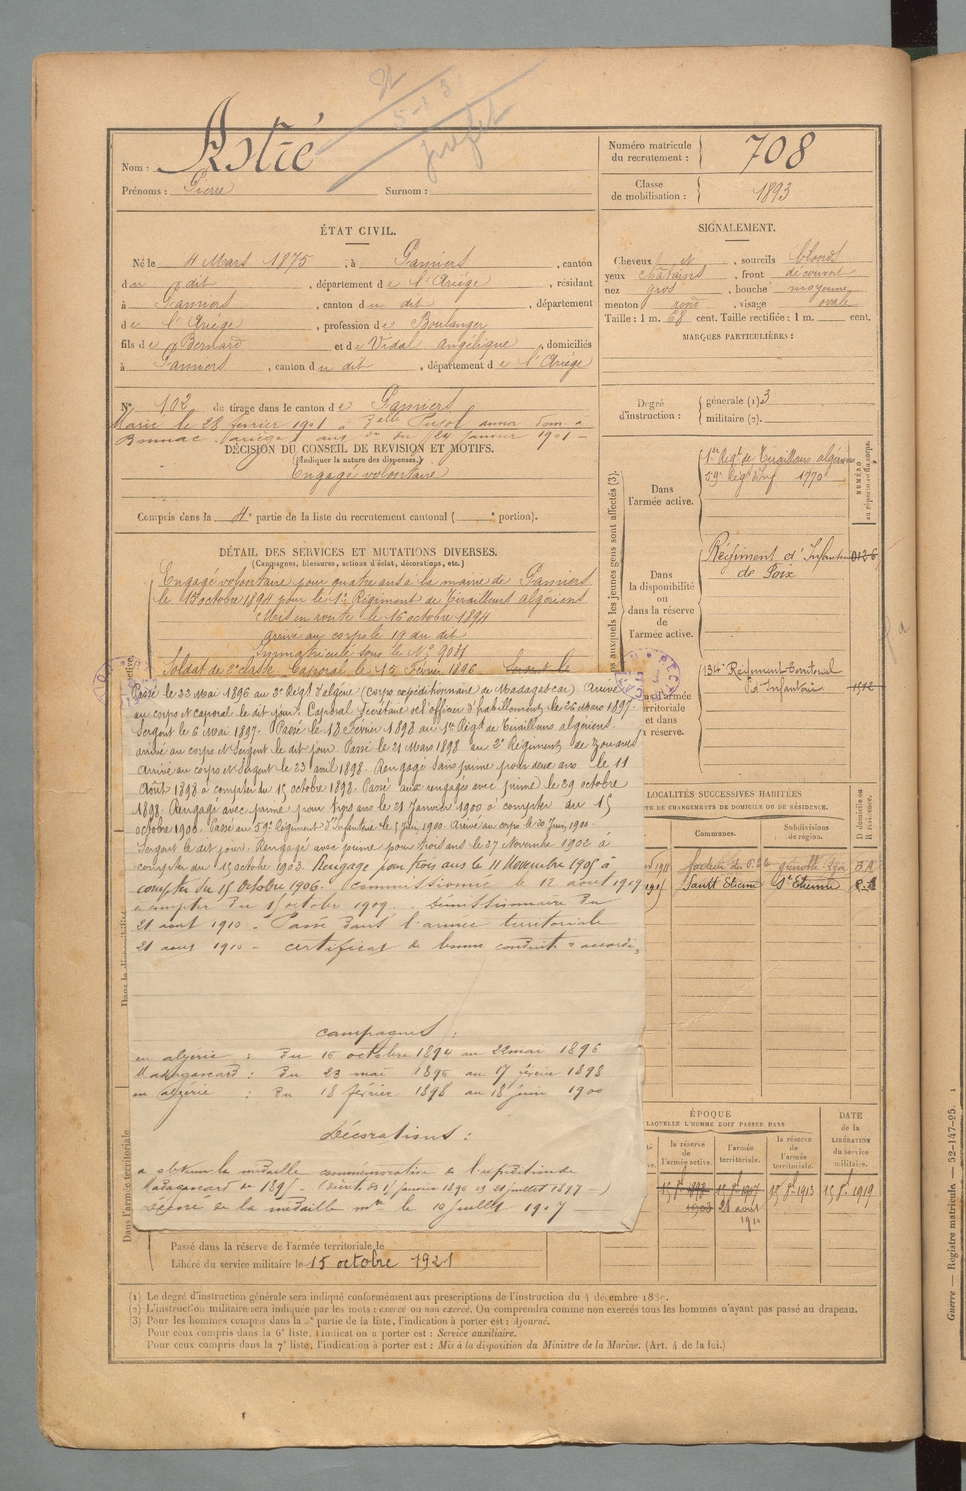 Nom : Astié
Prénoms : Pierre Surnom :
Numéro matricule du recrutement : 708
Classe de mobilisation : 1893
ÉTAT CIVIL.
Né le 4 Mars 1875, à Pamiers, canton
du dit, département de l'Ariège, résidant
à Pamiers, canton du dit, département
de l'Ariège, profession de Boulanger
fils de Bernard et de Vidal angélique, domiciliés
à Pamiers, canton du dit, département de l'Ariège
SIGNALEMENT.
Cheveux et, sourcils blonds
yeux chatains, front découvert
nez gros, bouche moyenne
menton rond, visage ovale
Taille : 1 m. 68 cent. Taille rectifiée : 1 m. cent.
MARQUES PARTICULIÈRES :
N° 102 de tirage dans le canton de Pamiers
Marié le 28 février 1901 à Delle Pujol anna
Bonnac (ariège) janvier 1901 –
DÉCISION DU CONSEIL DE REVISION ET MOTIFS.
(Indiquer la nature des dispenses.)
Engagé volontaire
Compris dans la 4e partie de la liste du recrutement cantonal ( e portion).
Degré d'instruction : générale (1) 3
militaire (2).
DÉTAIL DES SERVICES ET MUTATIONS DIVERSES.
(Campagnes, blessures, actions d'éclat, décorations, etc.)
Engagé volontaire pour quatre ans à la mairie de Pamiers
le 15 octobre 1894 pour le 1er Régiment de Tirailleurs algériens
Mis en route le 16 octobre 1894
Arrivé au corps le 19 du dit
Immatriculé sous le N°
Soldat de 2e classe. Caporal le 15 Février 1896
Passé le 22 Mai 1896 au 3e Régt d'algérie (Corps expéditionnaire de Madagascar) Arrivé
au corps et caporal le dit jour. Caporal Secrétaire de l'officier d'habillement le 26 Mars 1897.
Sergent le 6 Mai 1897. Passé le 18 Février 1898 au 1er Régt de Tirailleurs algériens
arrivé au corps et Sergent le dit jour. Passé le 21 Mars 1898 au 2e Régiment de Zouaves
Arrivé au corps et Sergent le 23 avril 1898. Rengagé sans prime pour deux ans le 11
Août 1898 à compter du 15 octobre 1898. Passé aux rengagés avec prime le 29 octobre
1898. Rengagé avec prime pour trois ans le 21 Janvier 1900 à compter du 15
octobre 1900. Passé au 59e Régiment d'Infanterie le 5 Juin 1900. Arrivé au corps le 20 Juin 1900
Sergent le dit jour. Rengagé avec prime pour trois ans le 27 Novembre 1902 à
compter du 15 octobre 1903. Rengagé pour trois ans le 11 Novembre 1905 à
compter du 15 Octobre 1906. Commissionné le 12 aout 1909
a compter du 15 octobre 1909. Demissionnaire du
21 aout 1910. Passé dans l'armée territoriale
21 aout 1910 – certificat de bonne conduite : accordé
Campagnes :
en algérie : du 16 octobre 1894 au 22 mai 1896
Madagascard : du 23 mai 1896 au 17 février 1898
en algérie : du 18 février 1898 au 18 juin 1900
Décorations :
a obtenu la médaille commémorative de l'expédition de
Madagascard de 1895 – (décrets du 15 janvier 1896 et 21 juillet 1897 –)
Décoré de la médaille mre le 10 juillet 1907
Passé dans la réserve de l'armée territoriale le
Libéré du service militaire le 15 octobre 1921
Corps auxquels les jeunes gens sont affectés (3)
NUMÉRO au répertoire du corps.
Dans l'armée active.
1er Régt de Tirailleurs algériens
59e Régt d'Inf 1770
Dans la disponibilité ou dans la réserve de l'armée active.
Régiment d'Infanterie
de Foix
134e Régiment Territorial
d'Infanterie
LOCALITÉS SUCCESSIVES HABITÉES
Communes.
Subdivisions de région.
D domicile ou R résidence.
Saint Etienne St Etienne
ÉPOQUE
À LAQUELLE L'HOMME DOIT PASSER DANS
la réserve de l'armée active.
l'armée territoriale.
la réserve de l'armée territoriale.
DATE de la LIBÉRATION du service militaire.
15 8bre 1913
15 8bre 1919
21 août 1910
(1) Le degré d'instruction générale sera indiqué conformément aux prescriptions de l'instruction du 4 décembre 1889.
(2) L'instruction militaire sera indiquée par les mots : exercé ou non exercé. On comprendra comme non exercés tous les hommes n'ayant pas passé au drapeau.
(3) Pour les hommes compris dans la 5e partie de la liste, l'indication à porter est : Ajourné.
Pour ceux compris dans la 6e liste, l'indication à porter est : Service auxiliaire.
Pour ceux compris dans la 7e liste, l'indication à porter est : Mis à la disposition du Ministre de la Marine. (Art. 4 de la loi.)
Guerre — Registre matricule. 52-147-25.